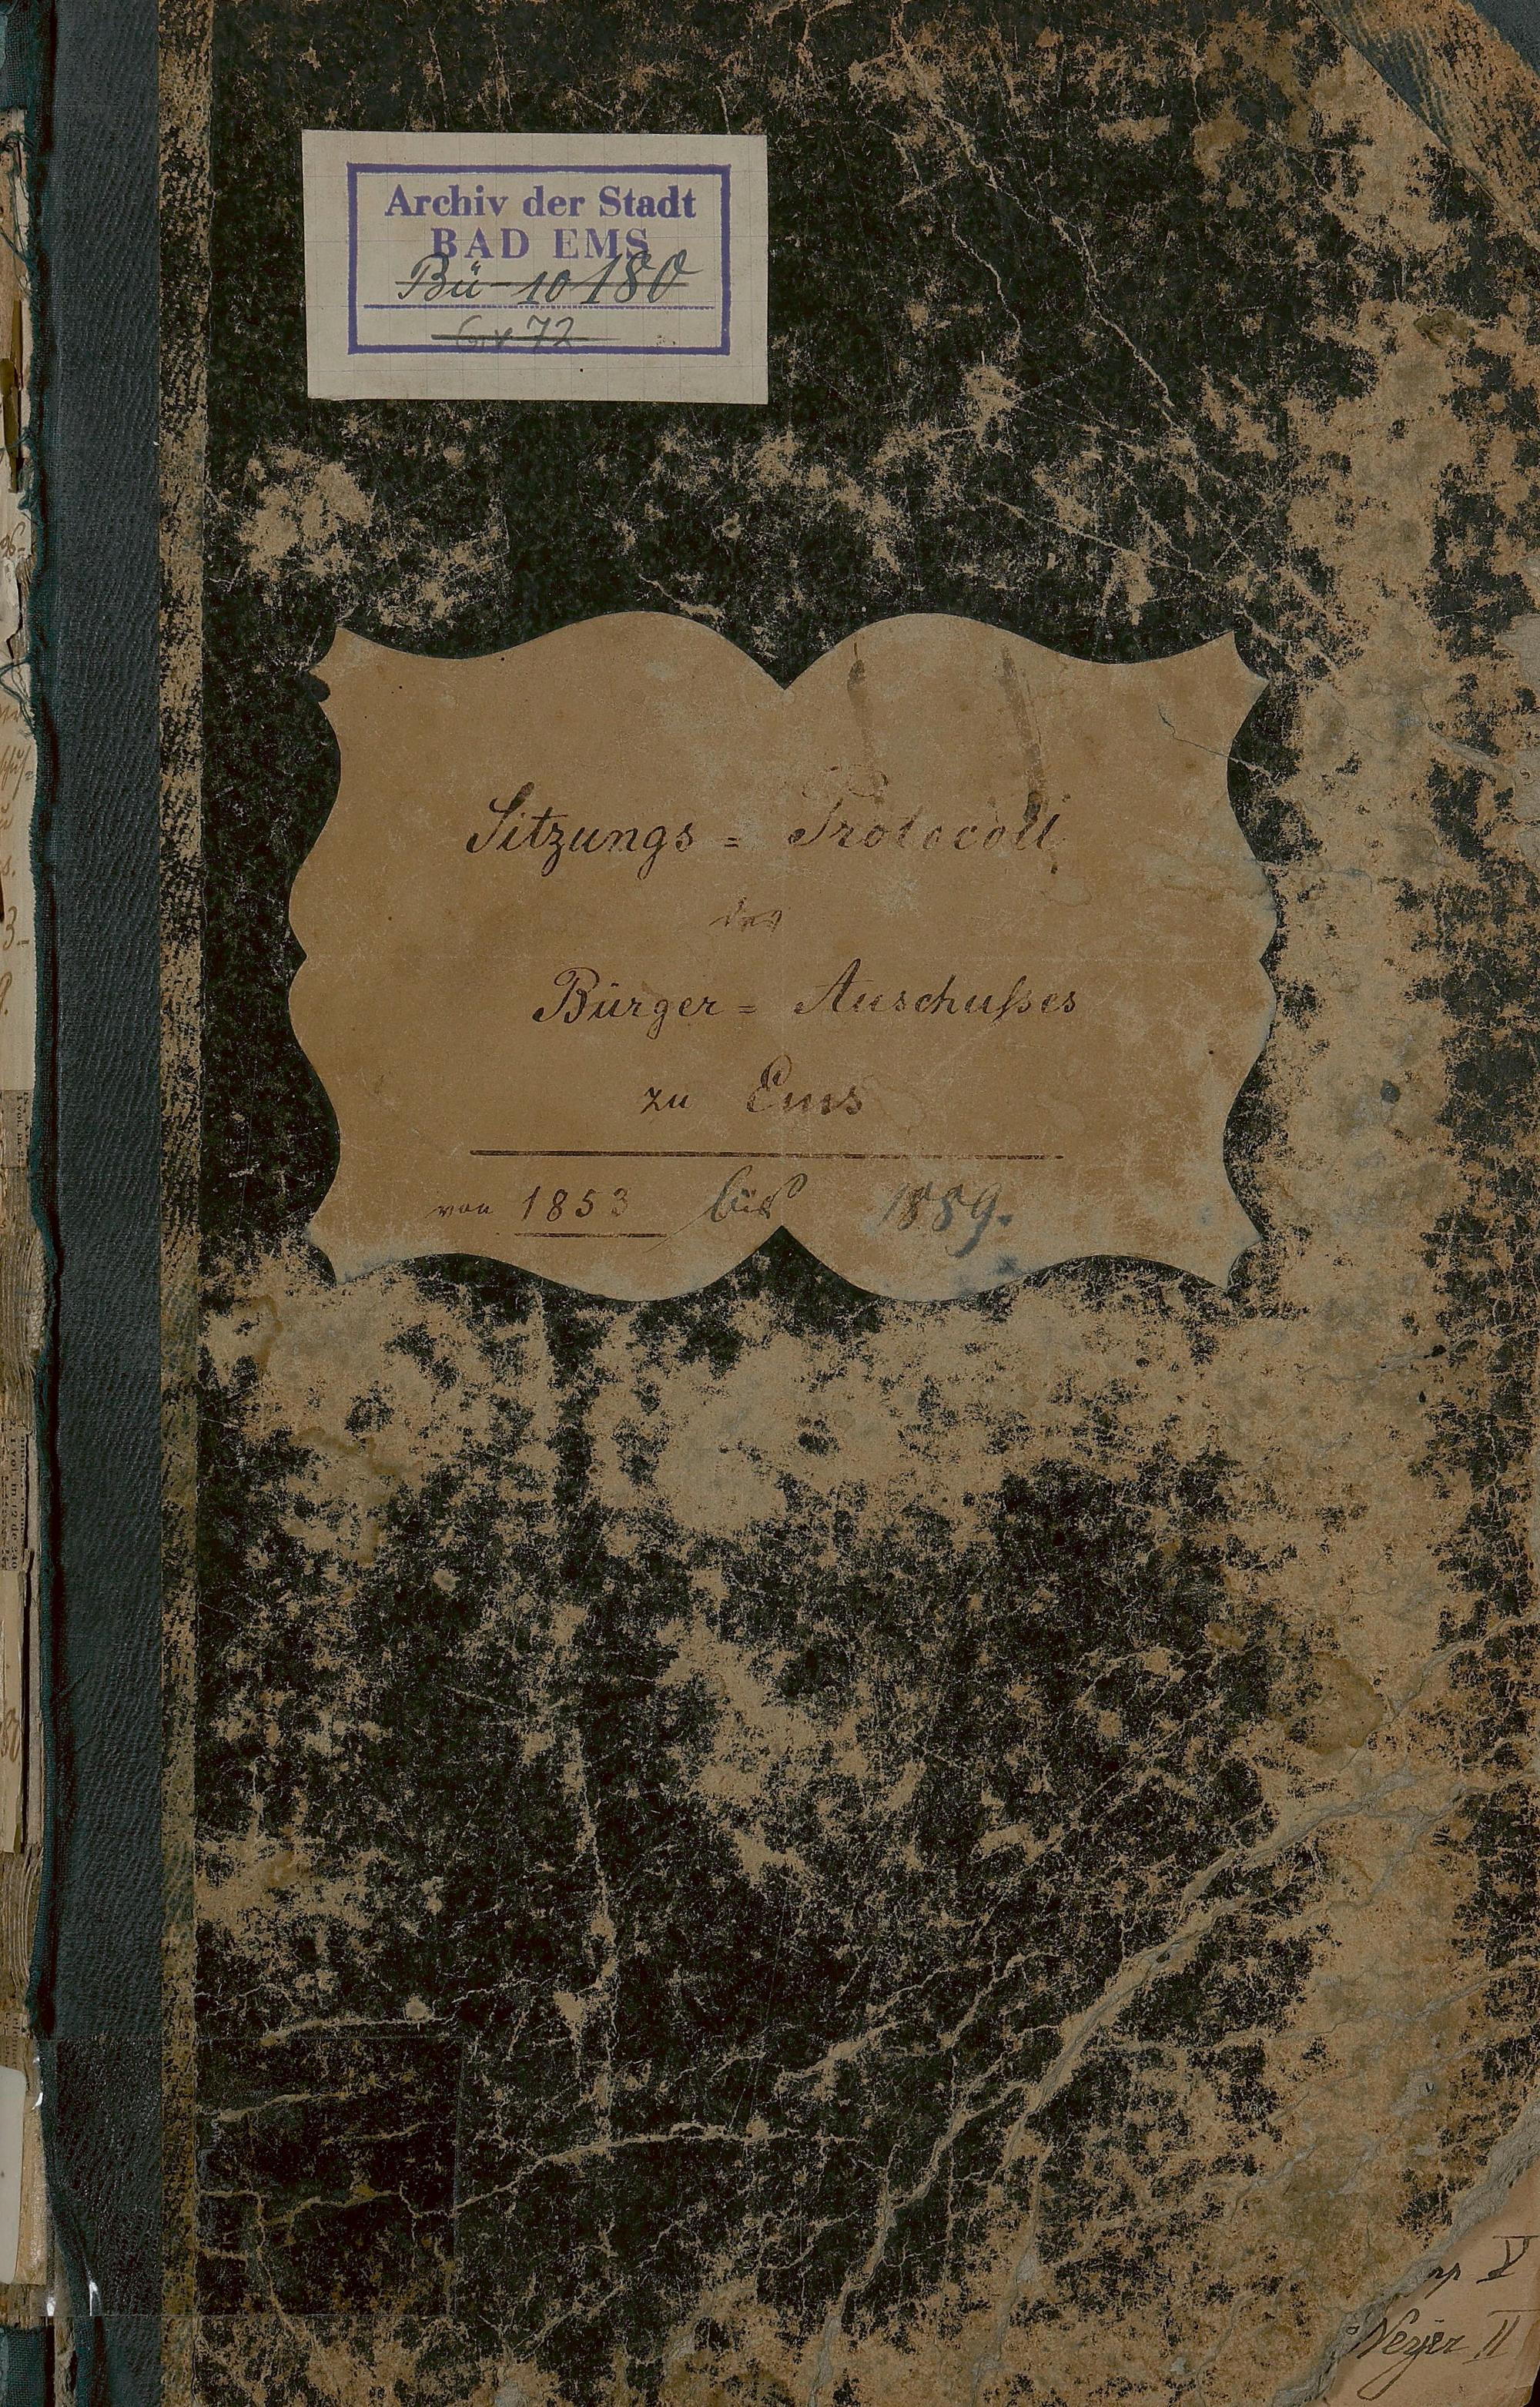 Archiv der Stadt
BAD EMS
Bü-10 180
72
Sitzungs = Protocoll
des
Bürger = Auschußes
zu Ems
von 1853 bis 1889.
V
Neyer II